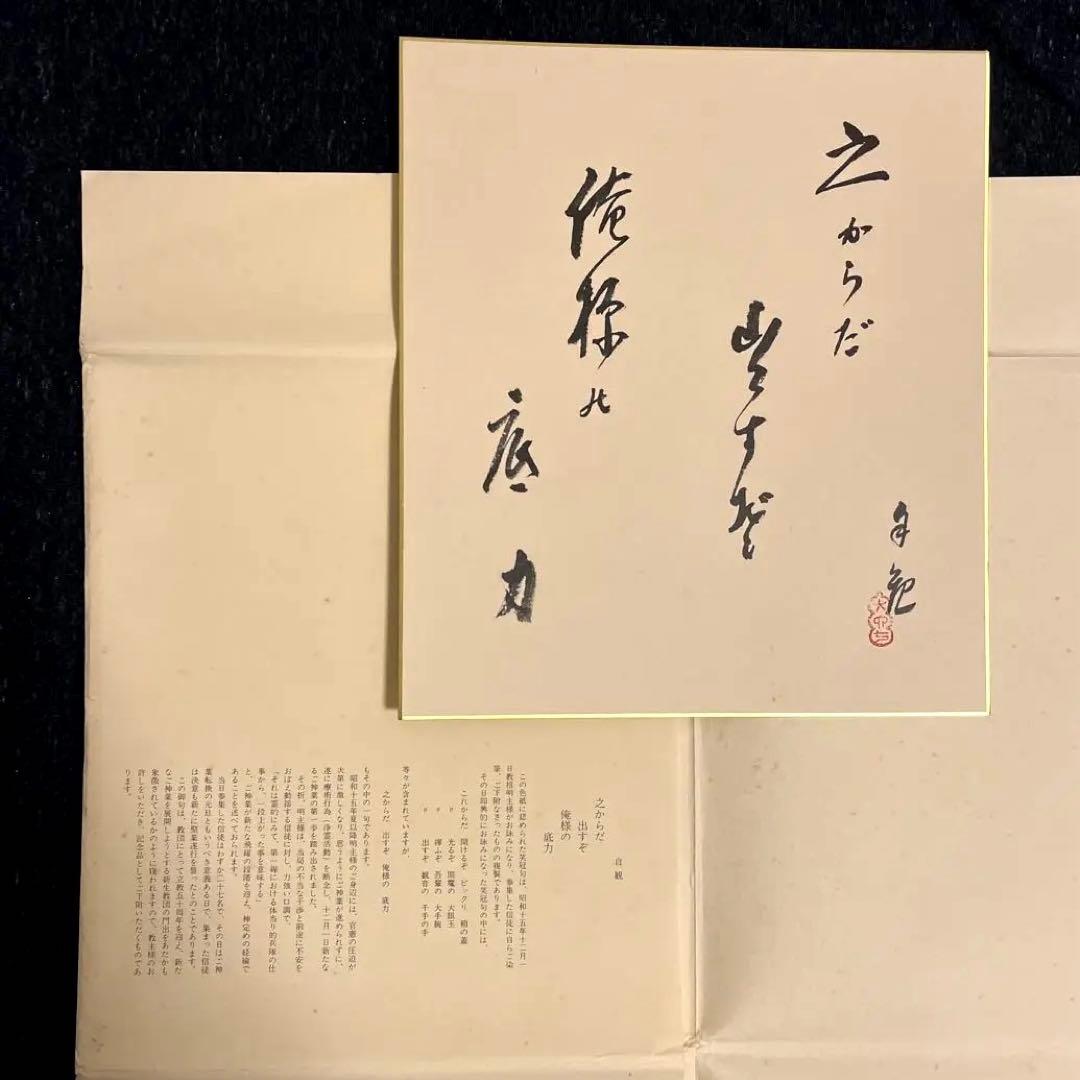 之からだ
出すぞ
俺様の
底力
自観
之からだ
出すぞ
俺様の
底力
自観
この色紙に認められた笑冠句は、昭和十五年十二月一
日教祖明主様がお詠みになり、参集した信徒に自らご染
筆、ご下附なさったものの複製であります。
その日即興的にお詠みになった笑冠句の中には、
これからだ 開けるぞ ビックリ 箱の蓋
〃 光るぞ 閻魔の 大眼玉
〃 揮ふぞ 吾輩の 大手腕
〃 出すぞ 観音の 千手の手
等々が含まれていますが、
之からだ 出すぞ 俺様の 底力
もその中の一句であります。
昭和十五年夏以降明主様のご身辺には、官憲の圧迫が
次第に激しくなり、思うようにご神業が進められずに、
遂に療術行為(浄霊活動)を断念し、十二月一日新たな
るご神業の第一歩を踏み出されました。
その折、明主様は、当局の不当な干渉と前途に不安を
おぼえ動揺する信徒に対し、力強い口調で、
「それは霊的にみて、第一線における体当り的兵隊の仕
事から、一段上がった事を意味する」
と、ご神業が新たな飛躍の段階を迎え、神定めの経綸で
あることを述べておられます。
当日参集した信徒はわずか二十七名で、その日はご神
業転換の元旦ともいうべき意義ある日で、集まった信徒
は決意も新たに聖業遂行を誓ったとのことであります。
この御句は、教団にとって立教五十周年を迎え、新た
なご神業を展開しようとする新生教団の門出をあたかも
象徴されているかのように窺われますので、教主様のお
許しをいただき、記念品としてご下附いただくものであ
ります。